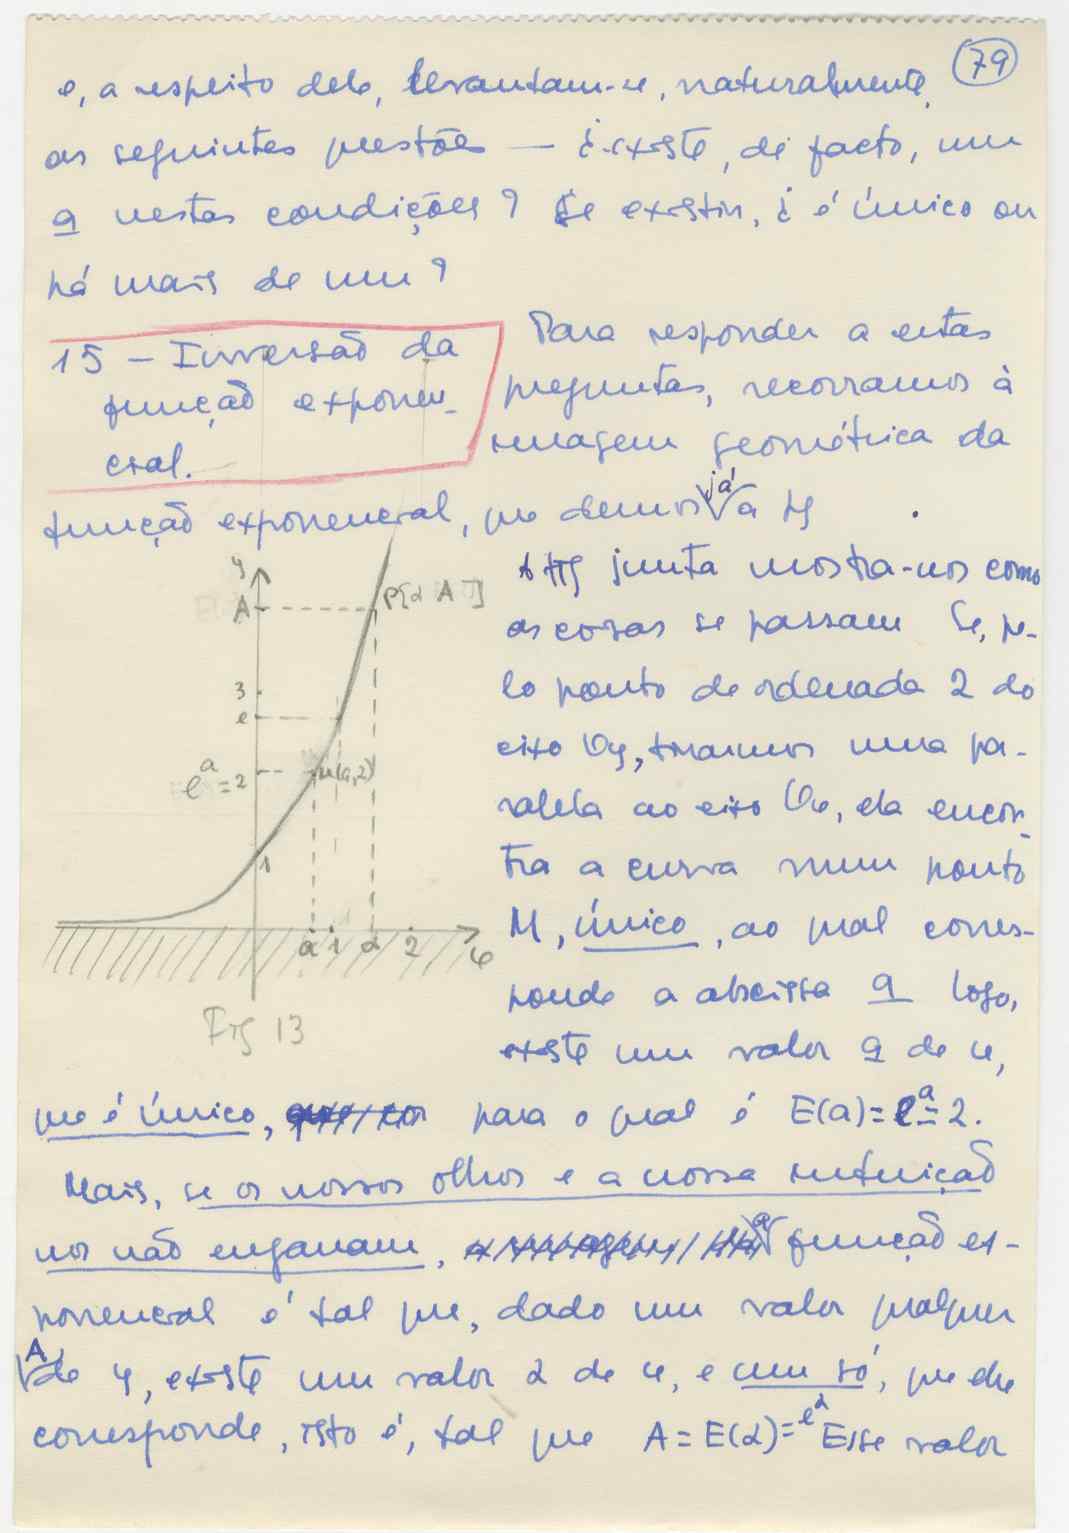 79
e, a respeito dele, levantam-se, naturalmente,
as seguintes questões — ¿existe, de facto, um
a nestas condições? Se existir, ¿é único ou
há mais de um?
15 — Inversão da
função exponen-
cial.
Para responder a estas
preguntas, recorramos à
imagem geométrica da
função exponencial, que demos já a fig .
A fig junta mostra-nos como
as coisas se passam Se, pe-
lo ponto de ordenada 2 do
eixo Oy, tiramos uma pa-
ralela ao eixo Ox, ela encon-
tra a curva num ponto
M, único, ao qual corres-
ponde a abscissa a logo,
existe um valor a de x,
que é único, para o qual é E(a)=e^a=2.
Mais, se os nossos olhos e a nossa intuição
nos não enganam, a função ex-
ponencial é tal que, dado um valor qualquer
A de y, existe um valor α de x, e um só, que lhe
corresponde, isto é, tal que A=E(α)=e^α Esse valor
y
A
P[α A]
3
e
e^a=2
M(a,2)
1
a 1 α 2 x
Fig 13